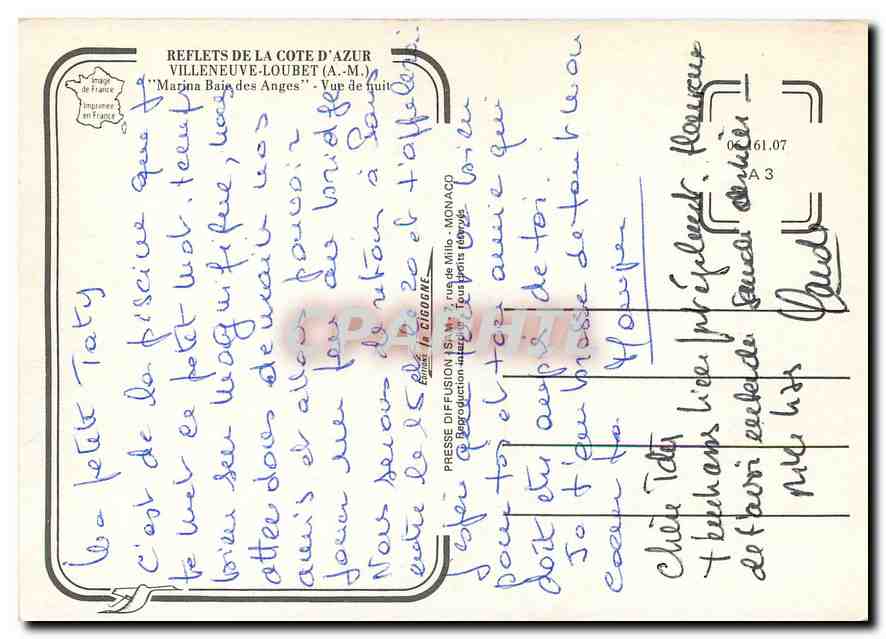 REFLETS DE LA COTE D'AZUR
VILLENEUVE-LOUBET (A.-M.)
"Marina Baie des Anges" - Vue de nuit
Image
de France
Imprimée
en France
Ma petite Taty
C'est de la piscine que je
te met ce petit mot. temps
bien sur magnifique, nous
attendons demain nos
amis et allons pouvoir
jouer un peu au bridge
Nous serons de retour à Paris
entre le 15 et le 20 et t'appelerai
j'espère que tout va bien
pour toi et ton amie qui
doit etre auprès de toi.
Je t'embrasse de tout mon
coeur ta
Editions la CIGOGNE
PRESSE DIFFUSION (SAM) - 7, rue de Millo - MONACO
© Reproduction interdite - Tous droits réservés
161.07
A 3
Chère Taty
Heureux
de t'avoir entendu samedi dernier -
CPARAMA